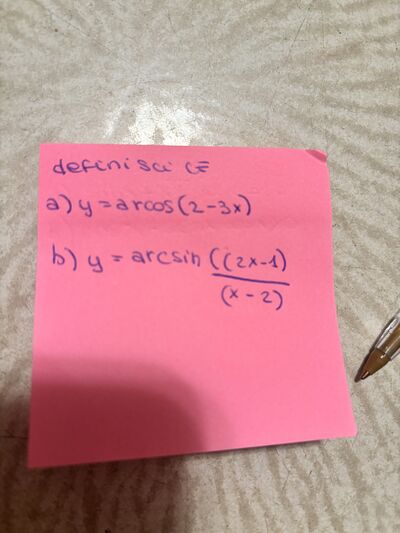 definisci CE
a) y = arcos(2-3x)
b) y = arcsin ((2x-1)
(x-2)